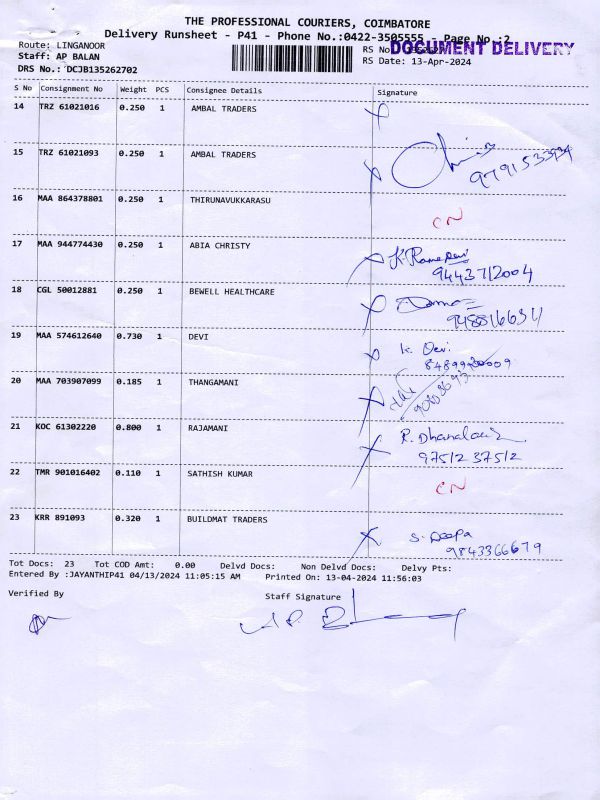 THE PROFESSIONAL COURIERS, COIMBATORE
Delivery Runsheet - P41 - Phone No.:0422-3505555 - Page No.:2
Route: LINGANOOR
RS No
DOCUMENT DELIVERY
Staff: AP BALAN
RS Date: 13-Apr-2024
DRS No.: DCJB135262702
S No Consignment No Weight PCS Consignee Details Signature
14 TRZ 61021016 0.250 1 AMBAL TRADERS
15 TRZ 61021093 0.250 1 AMBAL TRADERS
16 MAA 864378801 0.250 1 THIRUNAVUKKARASU CN
17 MAA 944774430 0.250 1 ABIA CHRISTY
9443712004
18 CGL 50012881 0.250 1 BEWELL HEALTHCARE
19 MAA 574612640 0.730 1 DEVI K. Devi
20 MAA 703907099 0.185 1 THANGAMANI
21 KOC 61302220 0.800 1 RAJAMANI
9751237512
22 TMR 901016402 0.110 1 SATHISH KUMAR CN
23 KRR 891093 0.320 1 BUILDMAT TRADERS S. Deepa
9843366679
Tot Docs: 23 Tot COD Amt: 0.00 Delvd Docs: Non Delvd Docs: Delvy Pts:
Entered By :JAYANTHIP41 04/13/2024 11:05:15 AM Printed On: 13-04-2024 11:56:03
Verified By Staff Signature